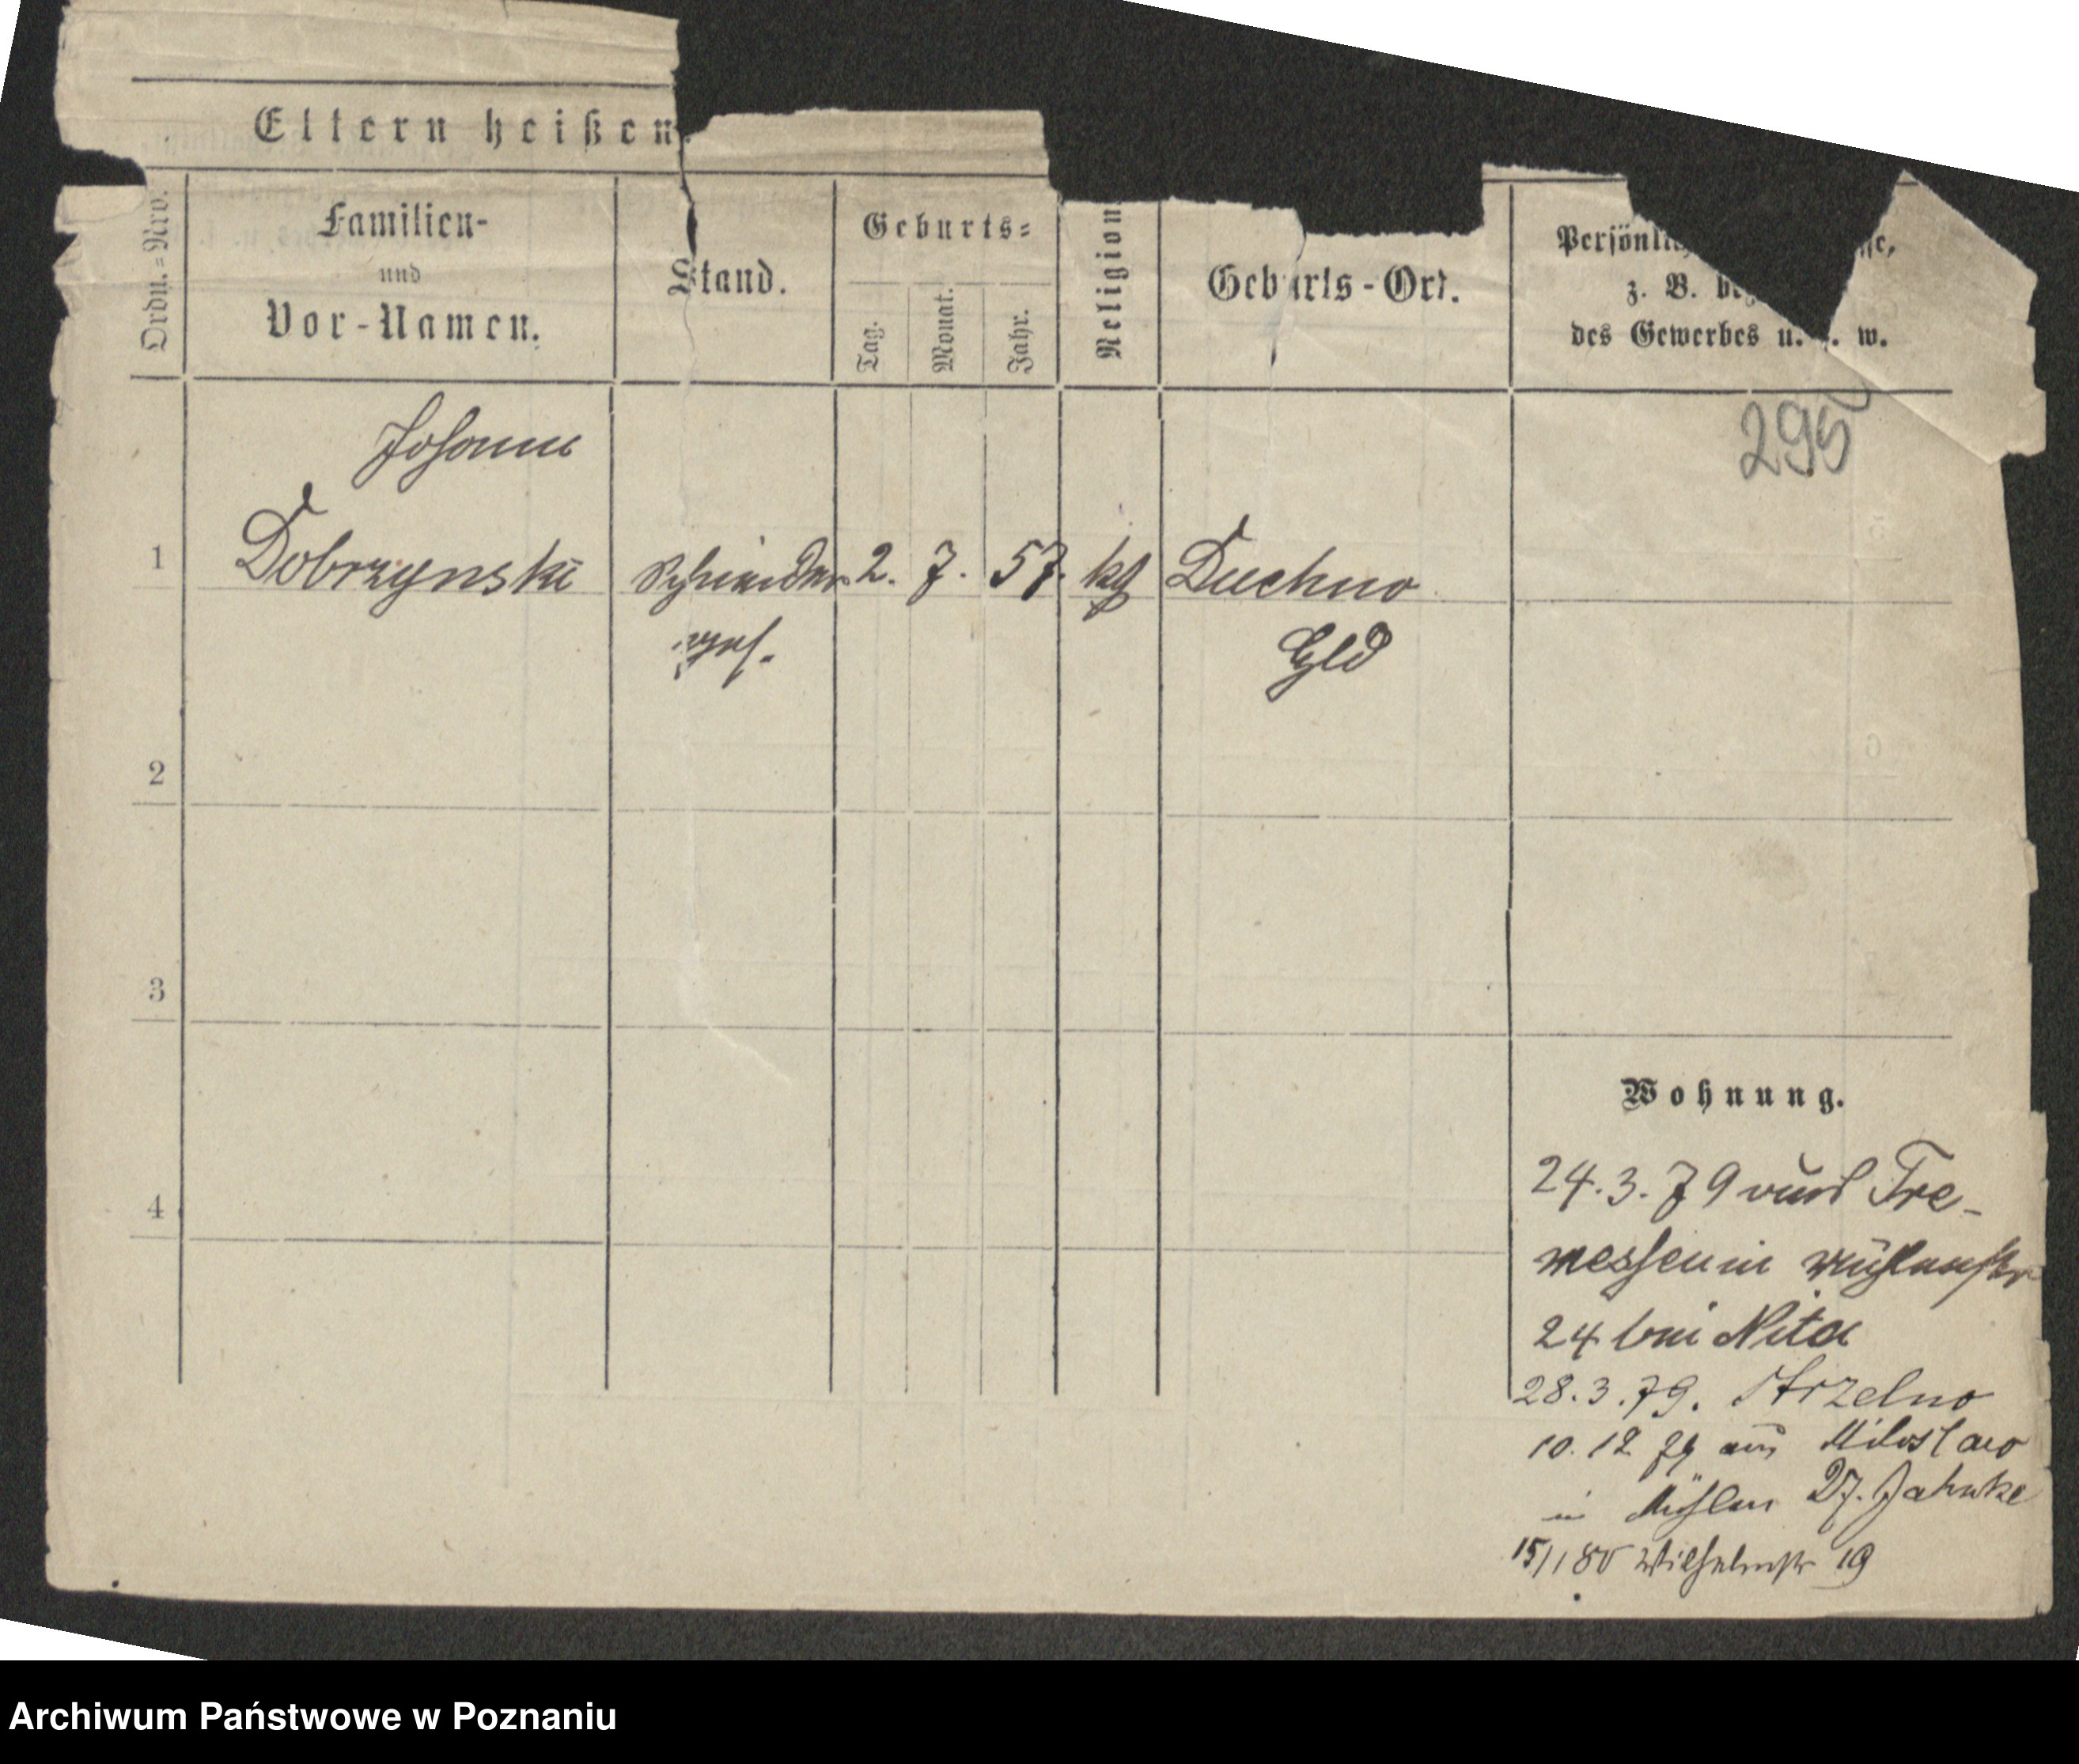 Eltern heißen
Ordn.=Nro.
Familien-
und
Vor-Namen.
Stand.
Geburts=
Tag.
Monat.
Jahr.
Religion
Geburts-Ort.
z. B.
des Gewerbes u. w.
295
Johann
1 Dobrzynski Schneider 2. 7. 57. kt Duchno
ges. Gld
2
3
4
Wohnung.
24.3.79 von Tre-
messen in Mühlenstr
24 bei Nita
28.3.79. Strzelno
10.12 79 aus Miloslaw
in Mühlen 27. Jahnke
15/1 80 Wilhelmstr 19
Archiwum Państwowe w Poznaniu